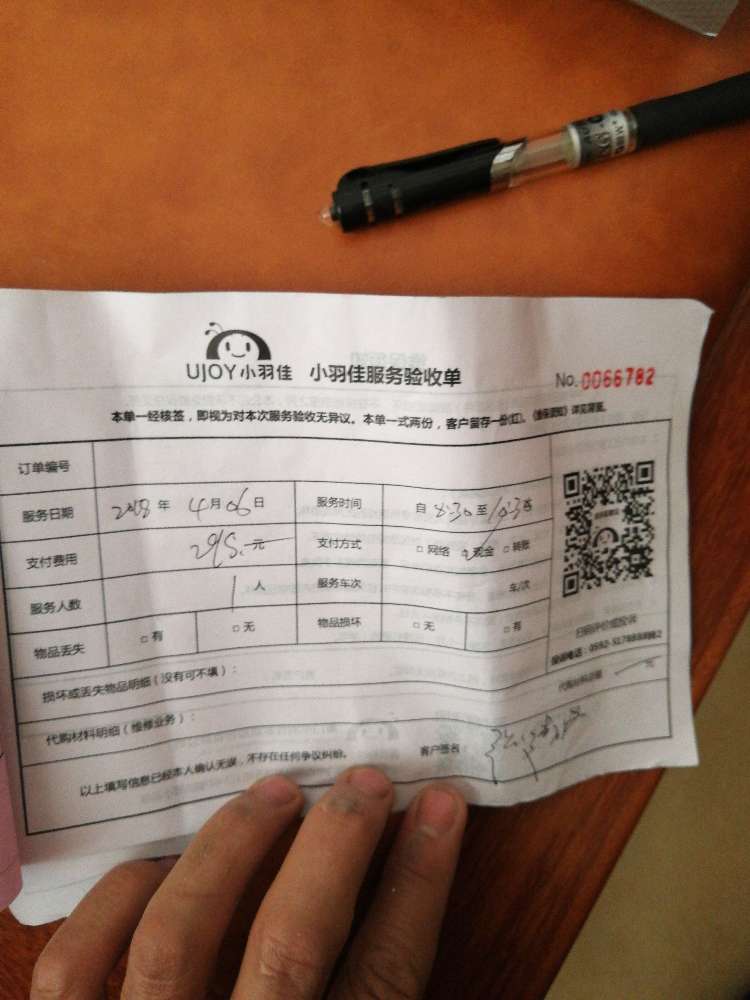 UJOY小羽佳 小羽佳服务验收单 No.0066782
本单一经核签，即视为对本次服务验收无异议。本单一式两份，客户留存一份(红)。《维保须知》详见背面。
订单编号
服务日期 2018年4月06日 服务时间 自8:30至10:30
支付费用 295.元 支付方式 □网络 □现金 □转账
服务人数 1人 服务车次 车/次
物品丢失 □有 □无 物品损坏 □无 □有
扫码评价或投诉
投诉电话：0592-517888882
损坏或丢失物品明细（没有可不填）：
代购材料明细（维修业务）： 代购材料总额 元
以上填写信息已经本人确认无误，不存在任何争议纠纷。 客户签名：